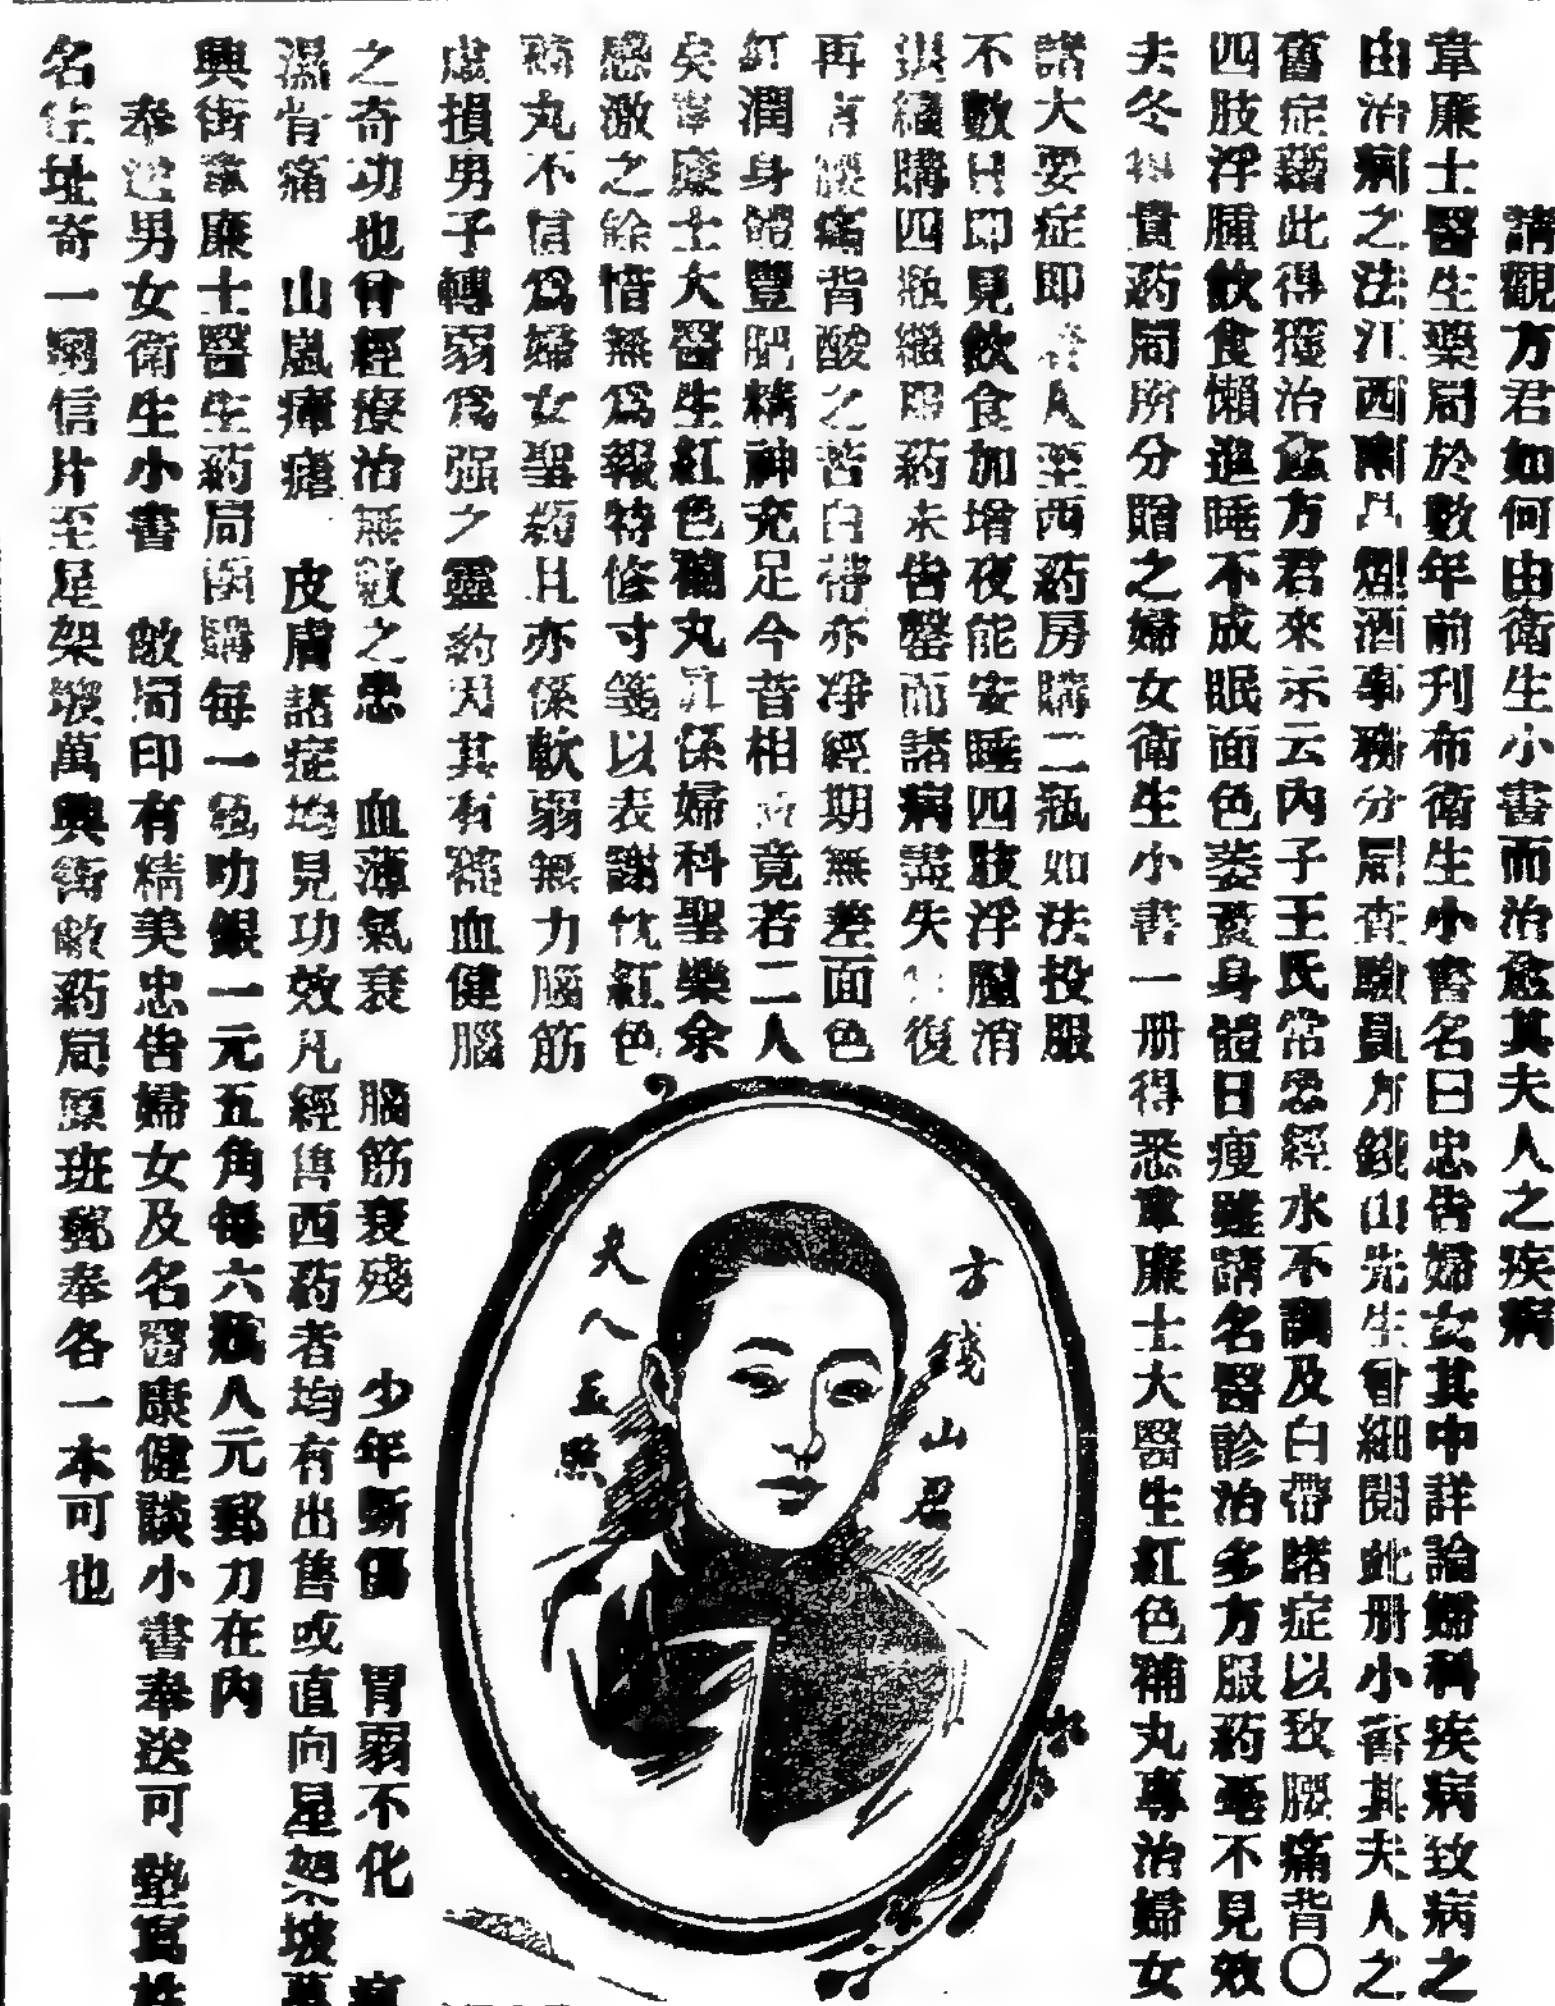 請觀方君如何由衛生小書而治愈其夫人之疾病
韋廉士醫生藥局於數年前刋布衛生小書名曰忠告婦女其中詳論婦科疾病致病之
由治病之法江西南昌烟酒事務分局查驗員方錢山先生曾細閱此册小書其夫人之
舊症藉此得獲治愈方君來示云內子王氏常患經水不調及白帶諸症以致腰痛背〇
四肢浮腫飲食懶進睡不成眠面色萎黃身體日瘦雖請名醫診治多方服药毫不見效
去冬得貴药局所分贈之婦女衛生小書一册得悉韋廉士大醫生紅色補丸專治婦女
諸大要症即 人至西药房購二瓶如法投服
不數日即見飲食加增夜能安睡四肢浮腫消
退續購四瓶繼服药未告罄而諸病盡失 復
再言腰痛背酸之苦白帶亦凈經期無差面色
紅潤身體豐肥精神充足今昔相 竟若二人
矣韋廉士大醫生紅色補丸眞係婦科聖樂余
感激之餘惜無爲報特修寸箋以表謝忱紅色
補丸不信爲婦女聖药且亦係軟弱無力腦筋
虛損男子轉弱爲强之靈药因其有補血健腦
之奇功也曾經療治無數之患 血薄氣衰 腦筋衰殘 少年斲傷 胃弱不化
濕骨痛 山嵐瘴瘧 皮膚諸症均見功效凡經售西药者均有出售或直向星加坡萬
興街韋廉士醫生药局函購每一瓶叻銀一元五角每六瓶八元郵力在內
奉送男女衛生小書 敝局印有精美忠告婦女及名醫康健談小書奉送可 寫姓
名住址寄一明信片至星架坡萬興街敝药局原班郵奉各一本可也
方錢山君
夫人玉照